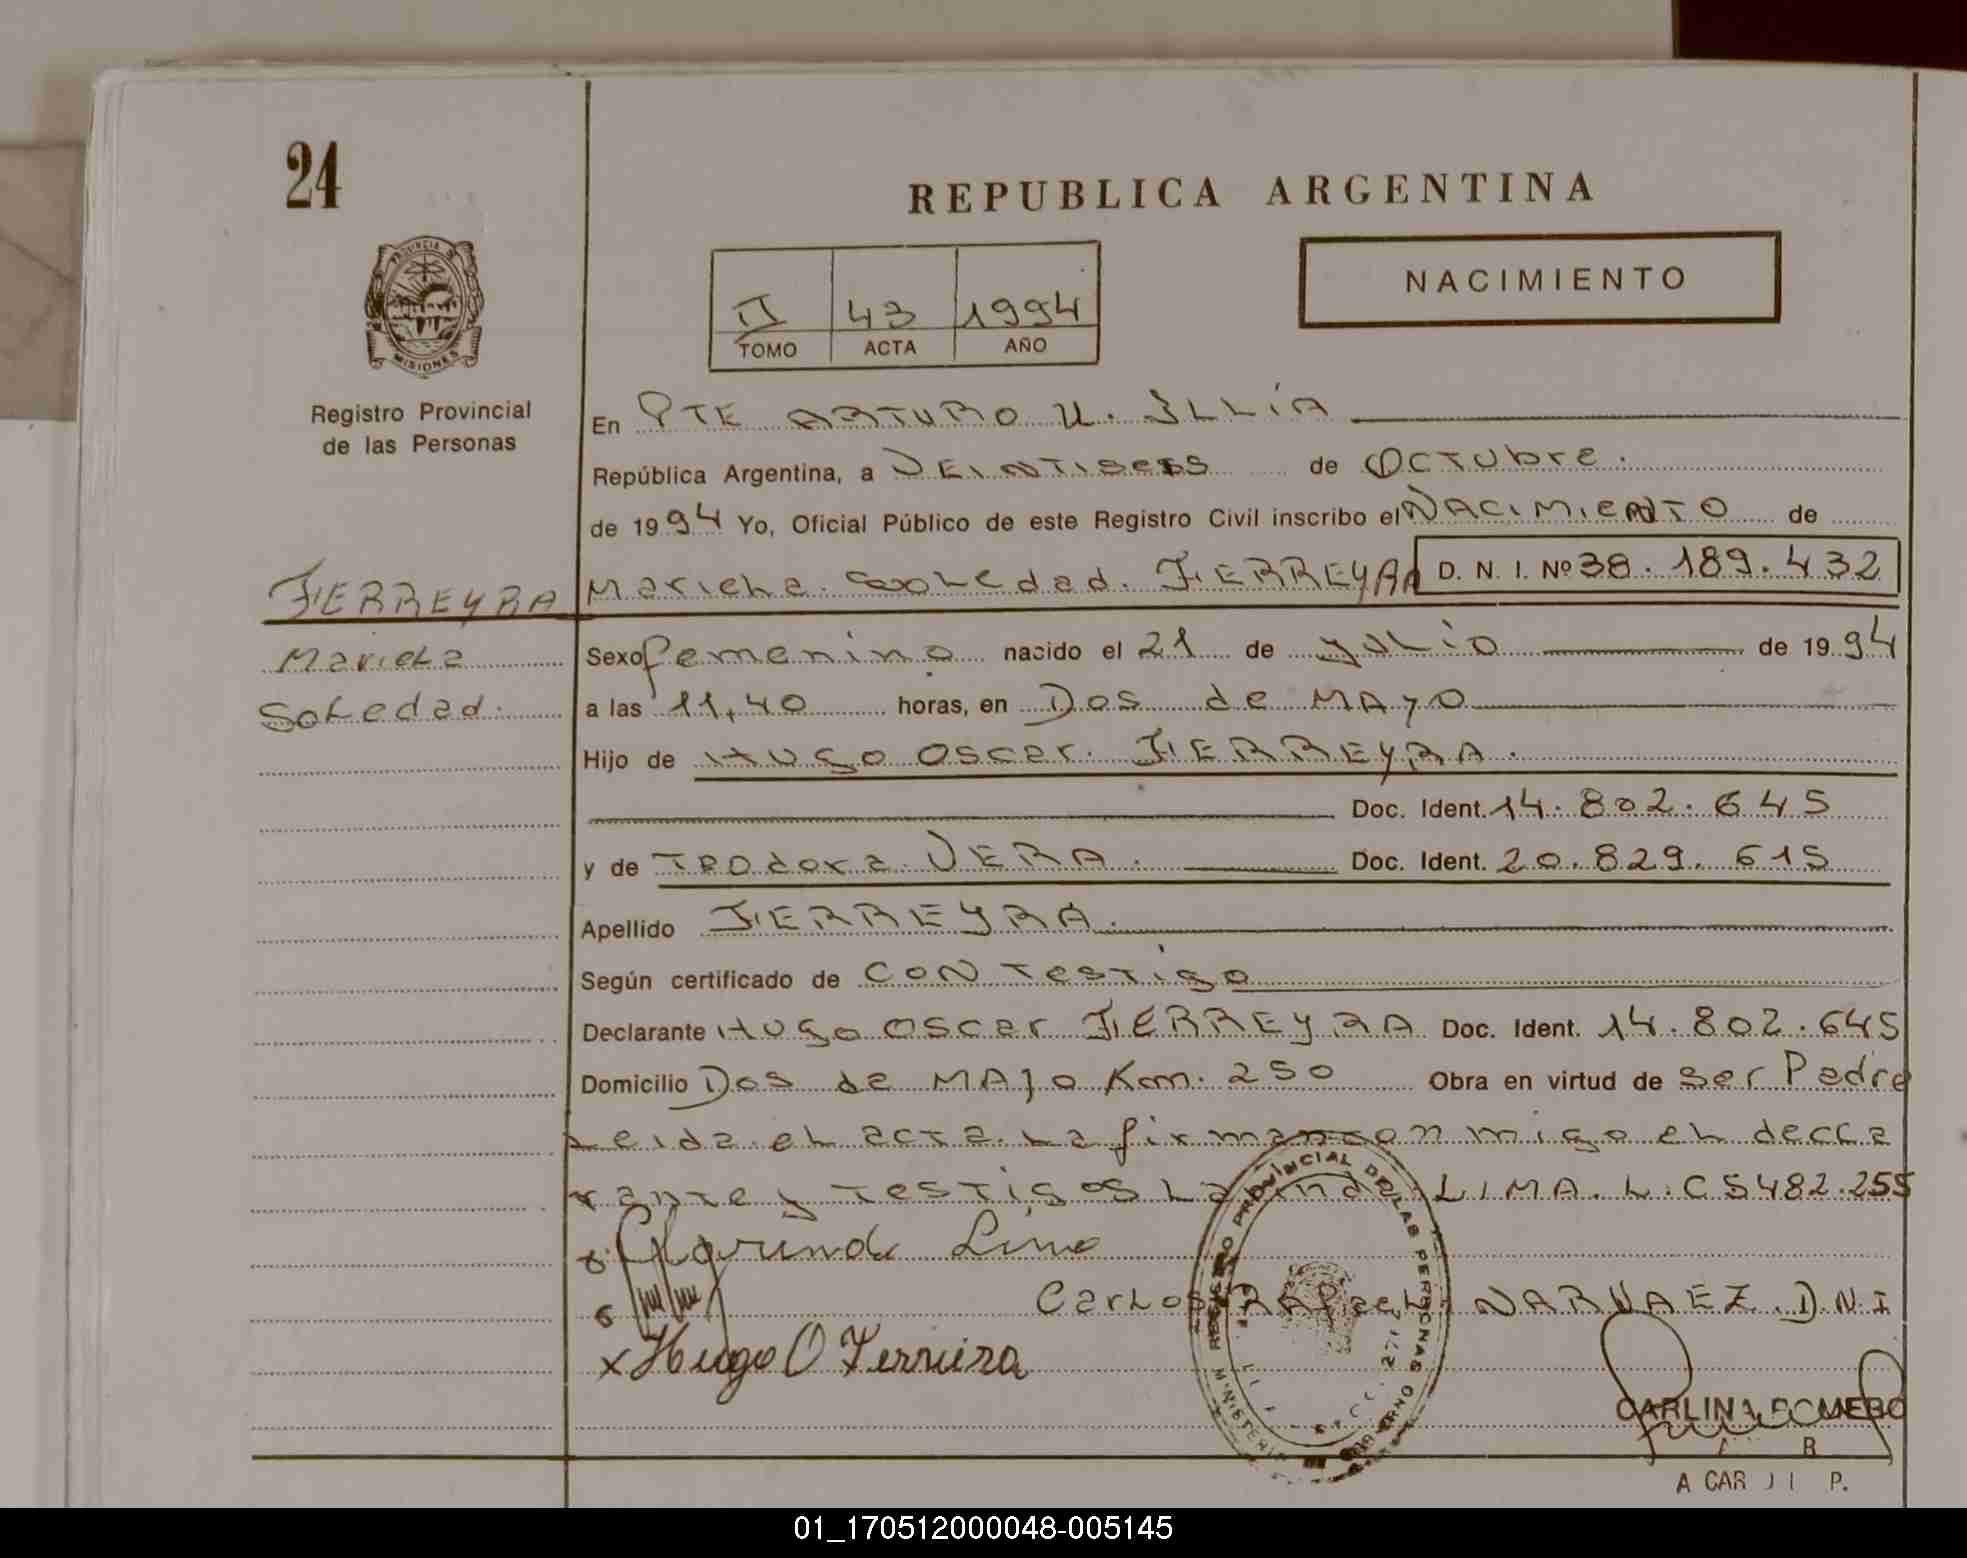 24
REPUBLICA ARGENTINA
PROVINCIA DE
MISIONES
Registro Provincial
de las Personas
II 43 1994
TOMO ACTA AÑO
NACIMIENTO
En PTE ARTURO U. ILLIA
República Argentina, a VEINTISEIS de OCTubre.
de 1994 Yo, Oficial Público de este Registro Civil inscribo el NACIMIENTO de
Mariela Soledad FERREYRA D. N. I. Nº 38.189.432
FERREYRA
Mariela
Soledad.
Sexo femenino nacido el 21 de julio de 1994
a las 11,40 horas, en Dos de MAYO
Hijo de Hugo Oscar FERREYRA.
Doc. Ident. 14.802.645
y de Teodora VERA. Doc. Ident. 20.829.615
Apellido FERREYRA.
Según certificado de CON Testigo
Declarante Hugo Oscar FERREYRA Doc. Ident. 14.802.645
Domicilio Dos de MAYO Km. 250 Obra en virtud de ser Padre
Leida el acta la firman con migo el decla
rante y Testigos LIMA. L.C 5482.255
Clorinda Lima
Carlos Rafael NARVAEZ D.N.I
x Hugo O Ferreira
REGISTRO PROVINCIAL DE LAS PERSONAS
CARLINA ROMERO
01_170512000048-005145